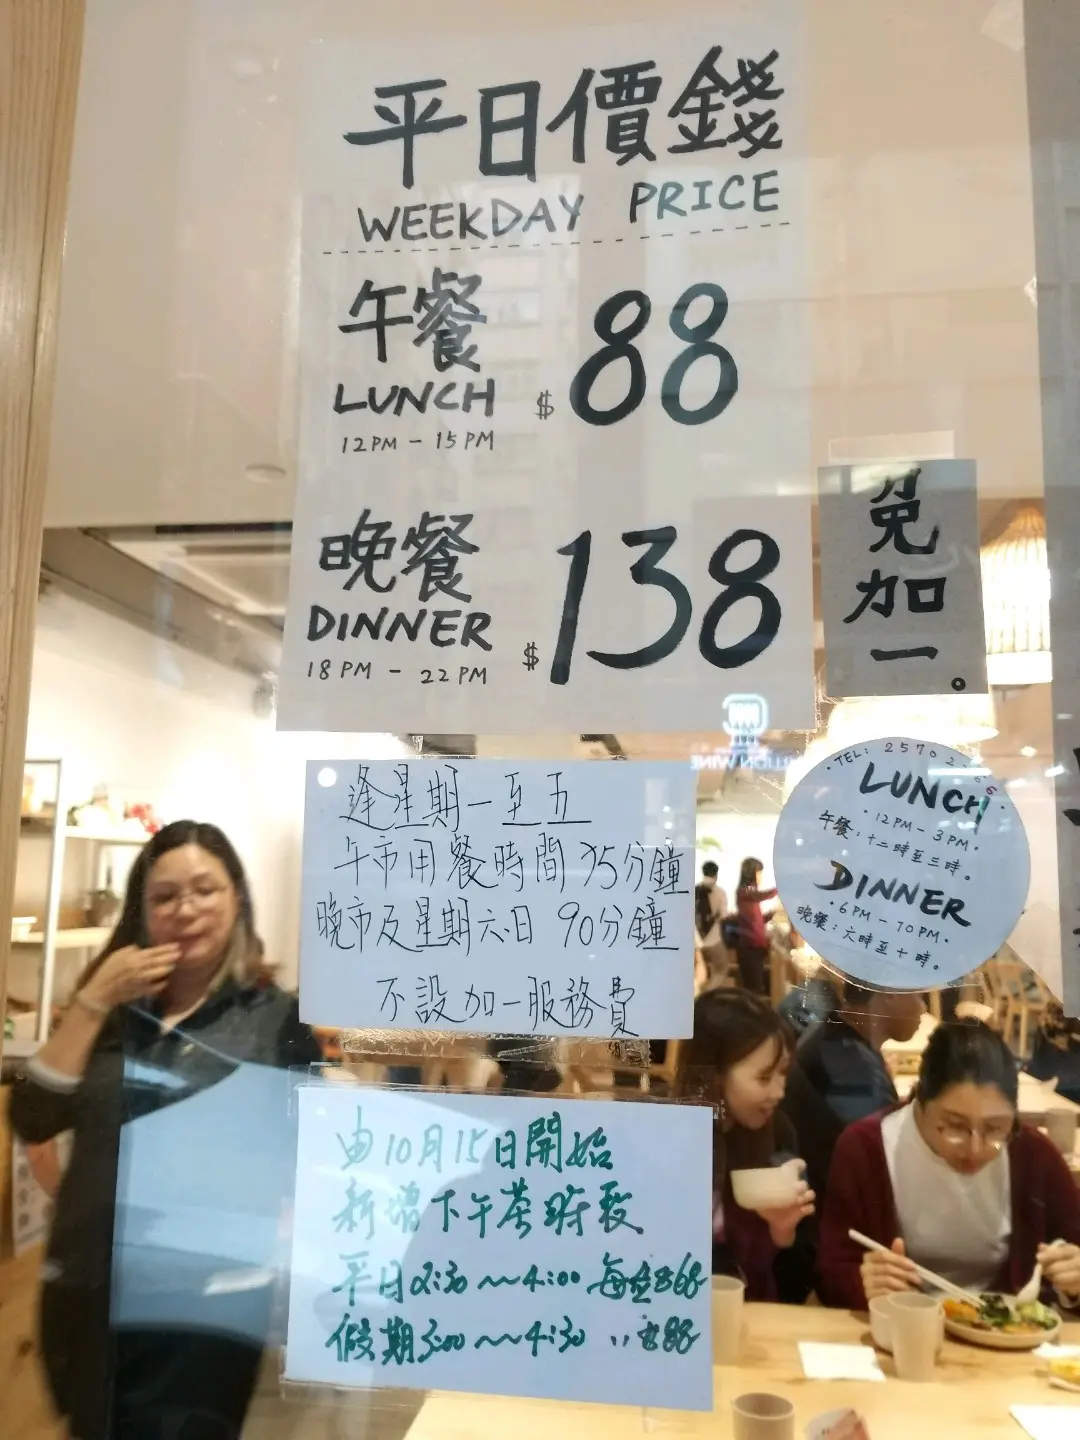 平日價錢
WEEKDAY PRICE
午餐
LUNCH
12PM - 15PM
$88
晚餐
DINNER
18PM - 22PM
$138
免加一。
逢星期一至五
午市用餐時間75分鐘
晚市及星期六.日 90分鐘
不設加一服務費
由10月15日開始
新增下午茶時段
平日2:30～4:00 每位$68
假期3:00～4:30 〃 $88
TEL: 2570
LUNCH
12PM - 3PM
午餐：十二時至三時。
DINNER
6PM - 10PM
晚餐：六時至十時。